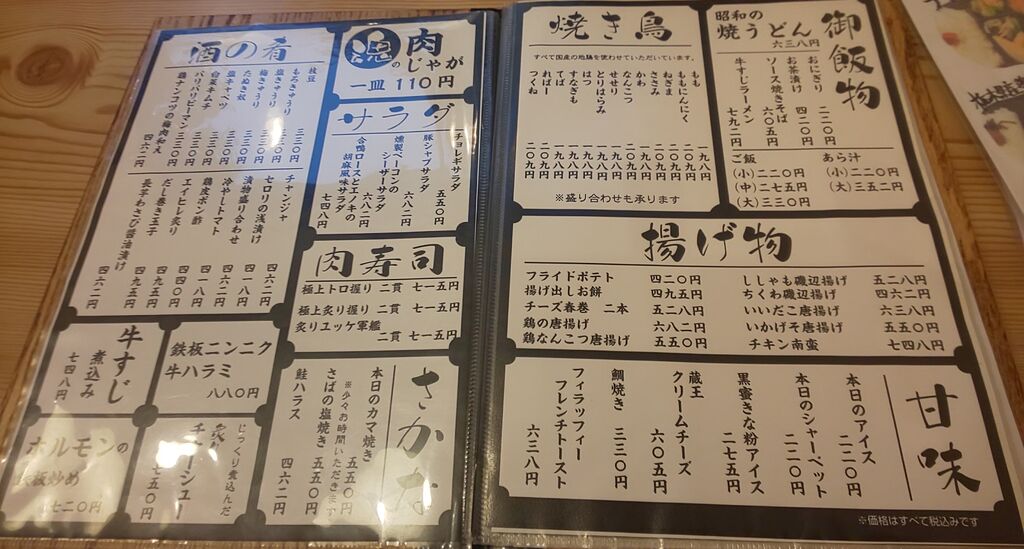 酒の肴
枝豆 三三〇円
もろきゅうり 三三〇円
梅きゅうり 三三〇円
塩キャベツ 三三〇円
白菜キムチ 三三〇円
パリパリピーマン 三三〇円
鶏ナンコツの梅肉和え 四六二円
チャンジャ 四六二円
セロリの浅漬け 四一八円
漬物盛り合わせ
冷やしトマト
鶏皮ポン酢 四一八円
エイヒレ炙り
だし巻き玉子 四九五円
長芋わさび醤油漬け 四六二円
肉のじゃが
一皿 110円
サラダ
チョレギサラダ 五五〇円
豚シャブサラダ 六八二円
燻製ベーコンのシーザーサラダ 六八二円
合鴨ロースとエノキの胡麻風味サラダ 七四八円
肉寿司
極上トロ握り 二貫 七一五円
極上炙り握り 二貫 七一五円
炙りユッケ軍艦 二貫 七一五円
牛すじ煮込み 七四八円
鉄板ニンニク牛ハラミ 八八〇円
ホルモンの鉄板炒め 七二〇円
じっくり煮込んだ
チャーシュー 五五〇円
さかな
本日のカマ焼き 五五〇円
※少々お時間いただきます
さばの塩焼き 五五〇円
鮭ハラス 四六二円
焼き鳥
すべて国産の地鶏を使わせていただいています。
ももにんにく
もも
ねぎま
ささみ
なんこつ
かわ
せせり
とりはらみ
はつ
すなぎも
てば
ればー
つくね
※盛り合わせも承ります
御飯物
昭和の焼うどん 六三八円
おにぎり 二二〇円
お茶漬け 四二〇円
ソース焼きそば 六〇五円
牛すじラーメン 七九二円
ご飯
(小) 二二〇円
(中) 二七五円
(大) 三三〇円
あら汁
(小) 二二〇円
(大) 三五二円
揚げ物
フライドポテト 四二〇円
揚げ出しお餅 四九五円
チーズ春巻 二本 五二八円
鶏の唐揚げ 六八二円
鶏なんこつ唐揚げ 五五〇円
ししゃも磯辺揚げ 五二八円
ちくわ磯辺揚げ 四六二円
いいだこ唐揚げ 六三八円
いかげそ唐揚げ 五五〇円
チキン南蛮 七四八円
甘味
本日のアイス 二二〇円
本日のシャーベット 二二〇円
黒蜜きな粉アイス 二七五円
蔵王クリームチーズ 六〇五円
鯛焼き 三三〇円
フィラッフィーフレンチトースト 六三八円
※価格はすべて税込みです